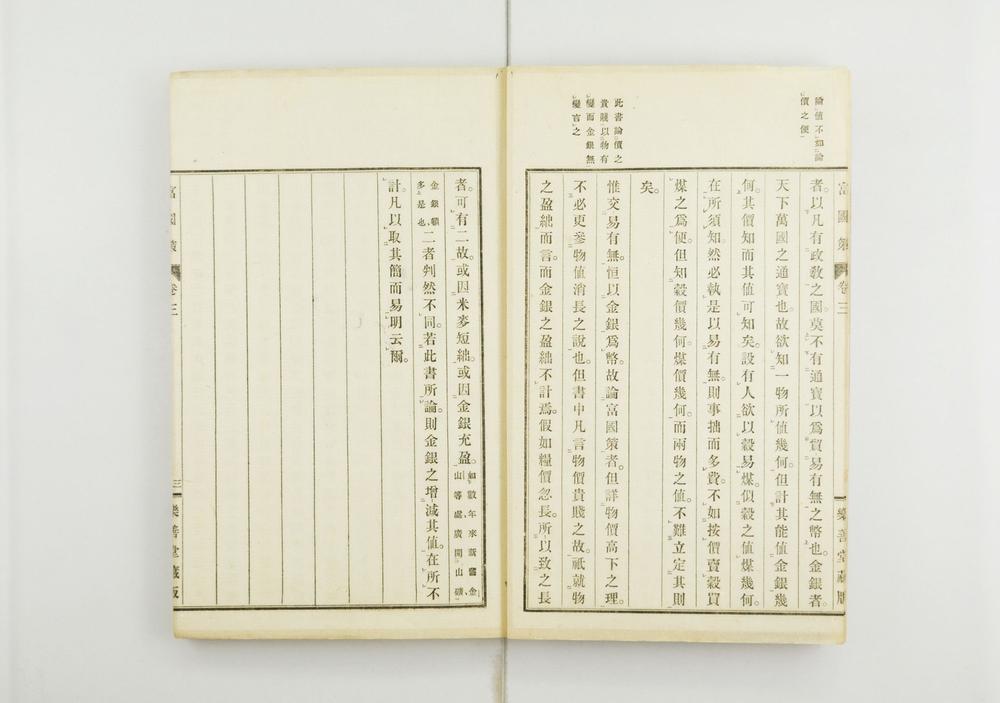 論值不如論
價之便
此書論價之
貴賤以物有
變而金銀無
變言之
富國策 卷三 樂善堂藏版
者。以凡有政教之國。莫不有通寶以爲貿易有無之幣也。金銀者。
天下萬國之通寶也。故欲知一物所值幾何。但計其能值金銀幾
何。其價知而其值可知矣。設有人欲以穀易煤。似穀之值煤幾何。
在所須知。然必執是以易有無。則事拙而多費。不如按價賣穀買
煤之爲便。但知穀價幾何。煤價幾何。而兩物之值。不難立定其則
矣。
惟交易有無。恒以金銀爲幣。故論富國策者。但詳物價高下之理。
不必更參物值消長之說也。但書中凡言物價貴賤之故。祇就物
之盈絀而言。而金銀之盈絀不計焉。假如糧價忽長。所以致之長
者。可有二故。或因米麥短絀。或因金銀充盈。如數年來新舊金山等處、廣開山礦、
金銀礦多是也、二者判然不同。若此書所論。則金銀之增減其值。在所不
計。凡以取其簡而易明云爾。
富國策 卷三 三 樂善堂藏版